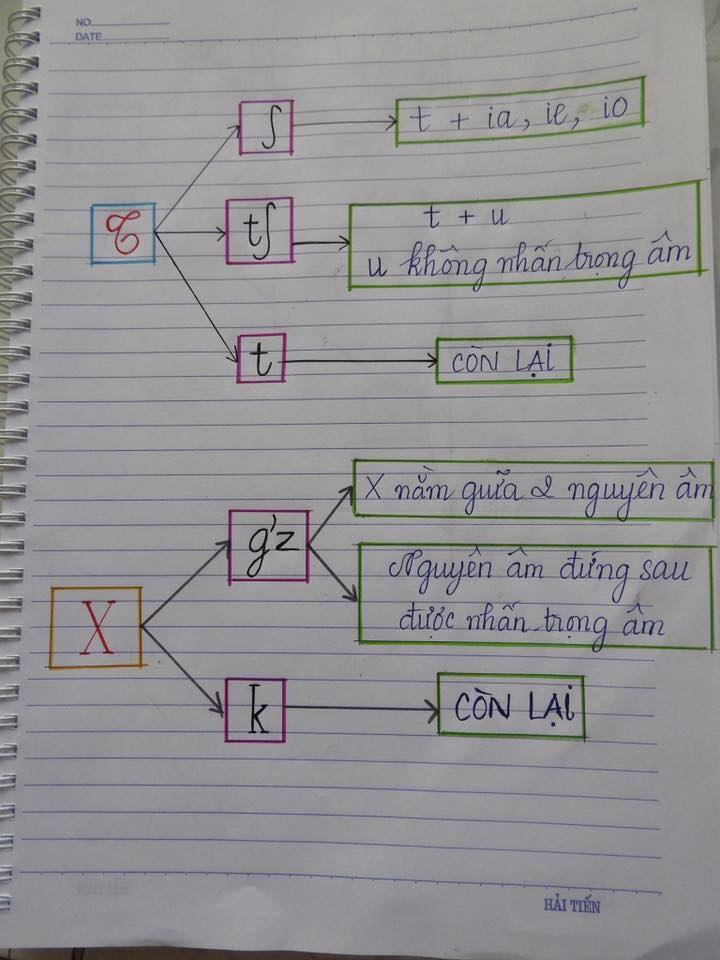 NO
DATE
ʃ
t + ia, ie, io
T
tʃ
t + u
u không nhấn trọng âm
t
CÒN LẠI
X nằm gưĩa 2 nguyên âm
g'z
Nguyên âm đứng sau
được nhấn trọng âm
X
k
CÒN LẠI
HẢI TIẾN